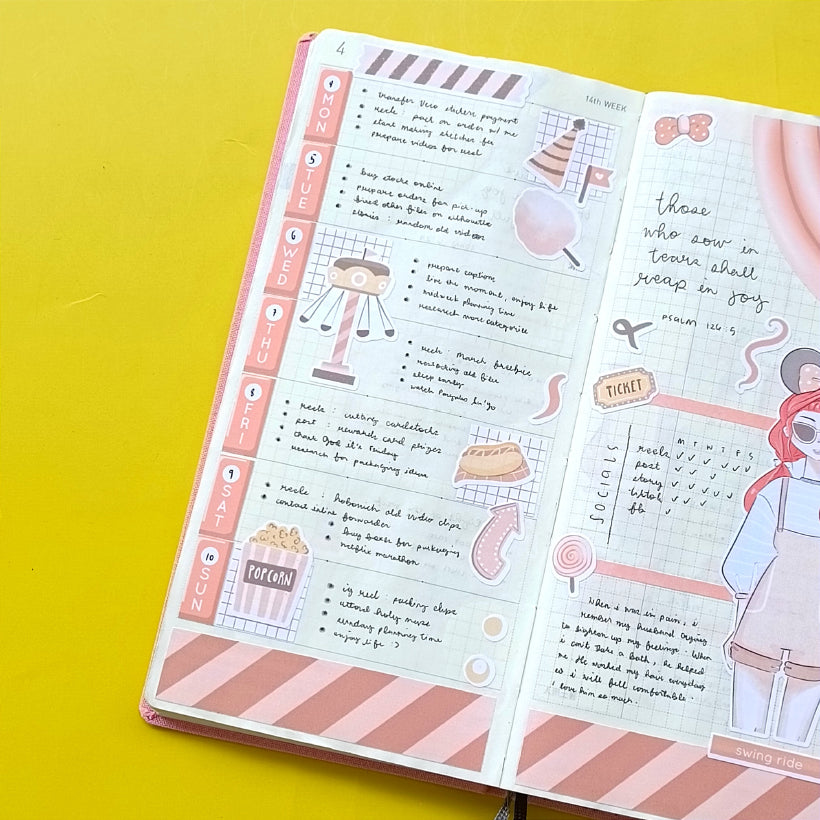 4
14th WEEK
4
MON
transfer Vivo stickers payment
reels : pack an order w/ me
start making sketches for
prepare videos for week
5
TUE
buy stocks online
prepare orders for pick-up
fixed other files on silhouette
stories : random old videos
6
WED
prepare caption
live the moment, enjoy life
midweek planning time
research more categories
7
THU
reels : March freebie
restocking old files
sleep early
watch
8
FRI
reels : cutting cardstocks
post : rewards card prizes
thank God it's Friday
research for packaging ideas
9
SAT
reels : hobonich old video clips
contact inline forwarder
buy boxes for packaging
netflix marathon
10
SUN
POPCORN
ig reel : packing clips
attend holy mass
sunday planning time
enjoy life :)
those
who sow in
tears shall
reap in joy
PSALM 126:5
TICKET
SOCIALS
M T W T F S
reels ✓ ✓ ✓ ✓ ✓
post ✓ ✓
story ✓ ✓ ✓ ✓ ✓
tiktok ✓ ✓
fb ✓
When i was in pain, i
remember my husband trying
to brighten up my feelings. When
i can't take a bath, he helped
me. He washed my hair everyday
so i will feel comfortable.
i love him so much.
swing ride